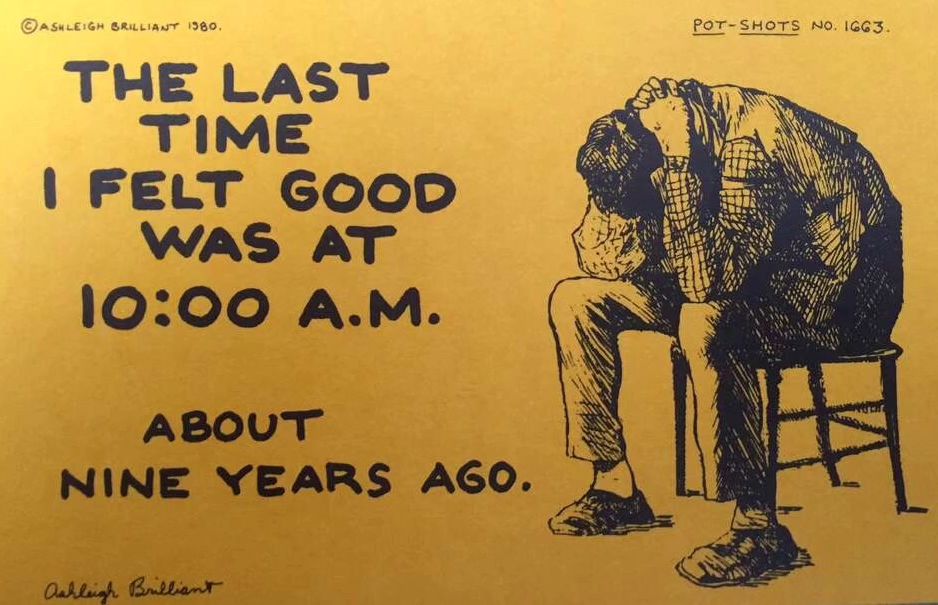 ©ASHLEIGH BRILLIANT 1980.
POT-SHOTS NO. 1663.
THE LAST
TIME
I FELT GOOD
WAS AT
10:00 A.M.
ABOUT
NINE YEARS AGO.
Ashleigh Brilliant